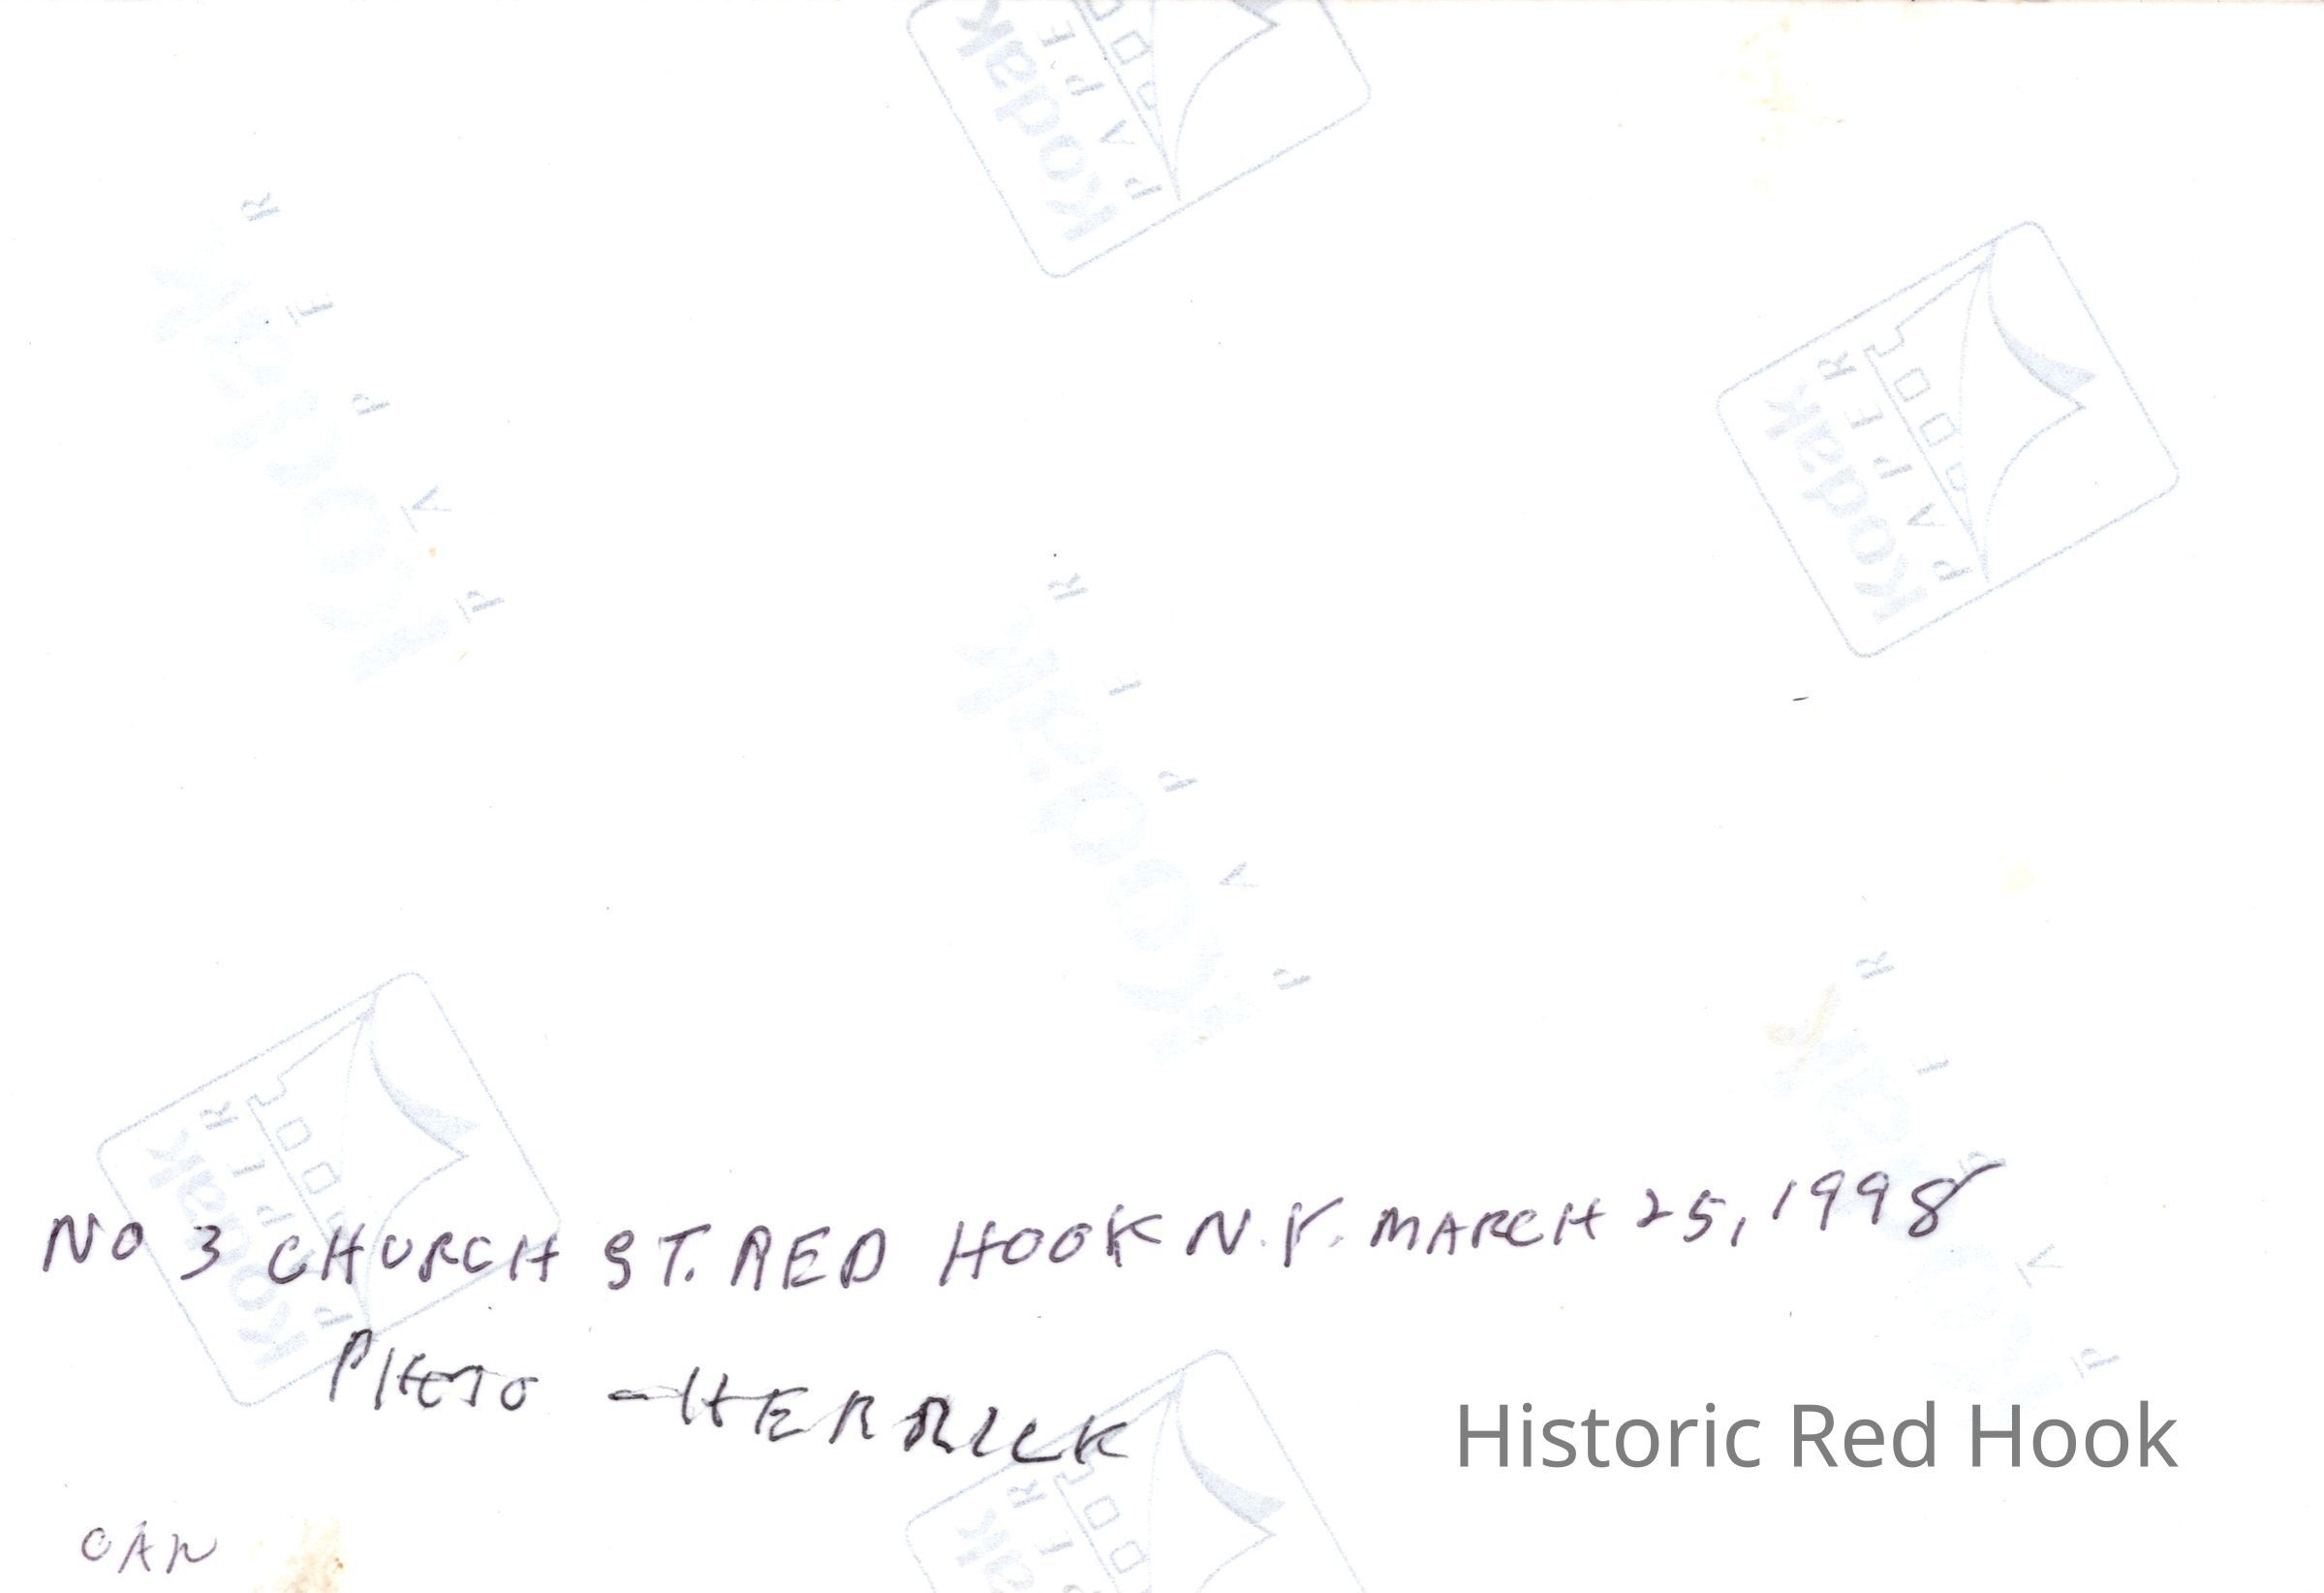 Kodak
PAPER
Kodak
PAPER
Kodak
PAPER
Kodak
PAPER
Kodak
PAPER
Kodak
PAPER
NO 3 CHURCH ST. RED HOOK N.Y. MARCH 25, 1998
PHOTO - HERRICK
Historic Red Hook